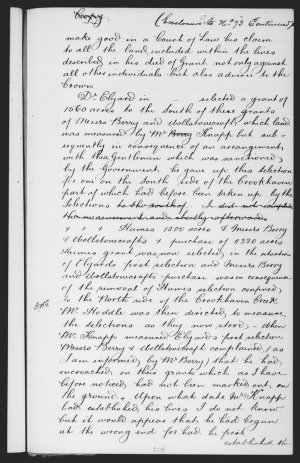 Copy (Enclosure to No 93 Continued)
make good in a Court of Law his claim
to all the land included within the lines
described in his deed of Grant not only against
all other individuals but also adverse to the
Crown
Dr. Elyard in selected a grant of
1560 acres to the South of these grants
of Messrs Berry and Wollstonecraft which land
was measured by Mr Berry Knapp but sub-
sequently in consequence of an arrangement
with these Gentlemen which was sanctioned
by the Government, he gave up this selection
for one on the South side of the Crookhaven
part of which had before been taken up by the
selections to the south of. I did not complete
the measurement and shortly afterwards
+ + Humes 1200 acres & Messrs Berry
& Wollstonecrafts + purchase of 2320 acres
Humes grant was now selected in the situation
of Elyards first selection and Messrs Berry
and Wollstonecrafts purchase was in consequence
of the removal of Humes selection confined
to the North side of the Crookhaven Creek
Mr. Hoddle was then directed to measure
the selections as they now stood. When
Mr Knapp measured Elyards first selection
Messrs Berry & Wollstonecraft complained (as
I am informed by Mr Berry) that he had
encroached on their grants which as I have
before noticed, had not been marked out, on
the ground. Upon what data Mr Knapp
had established his lines I do not know
but it would appear that he had begun
at the wrong end for had he first
established the